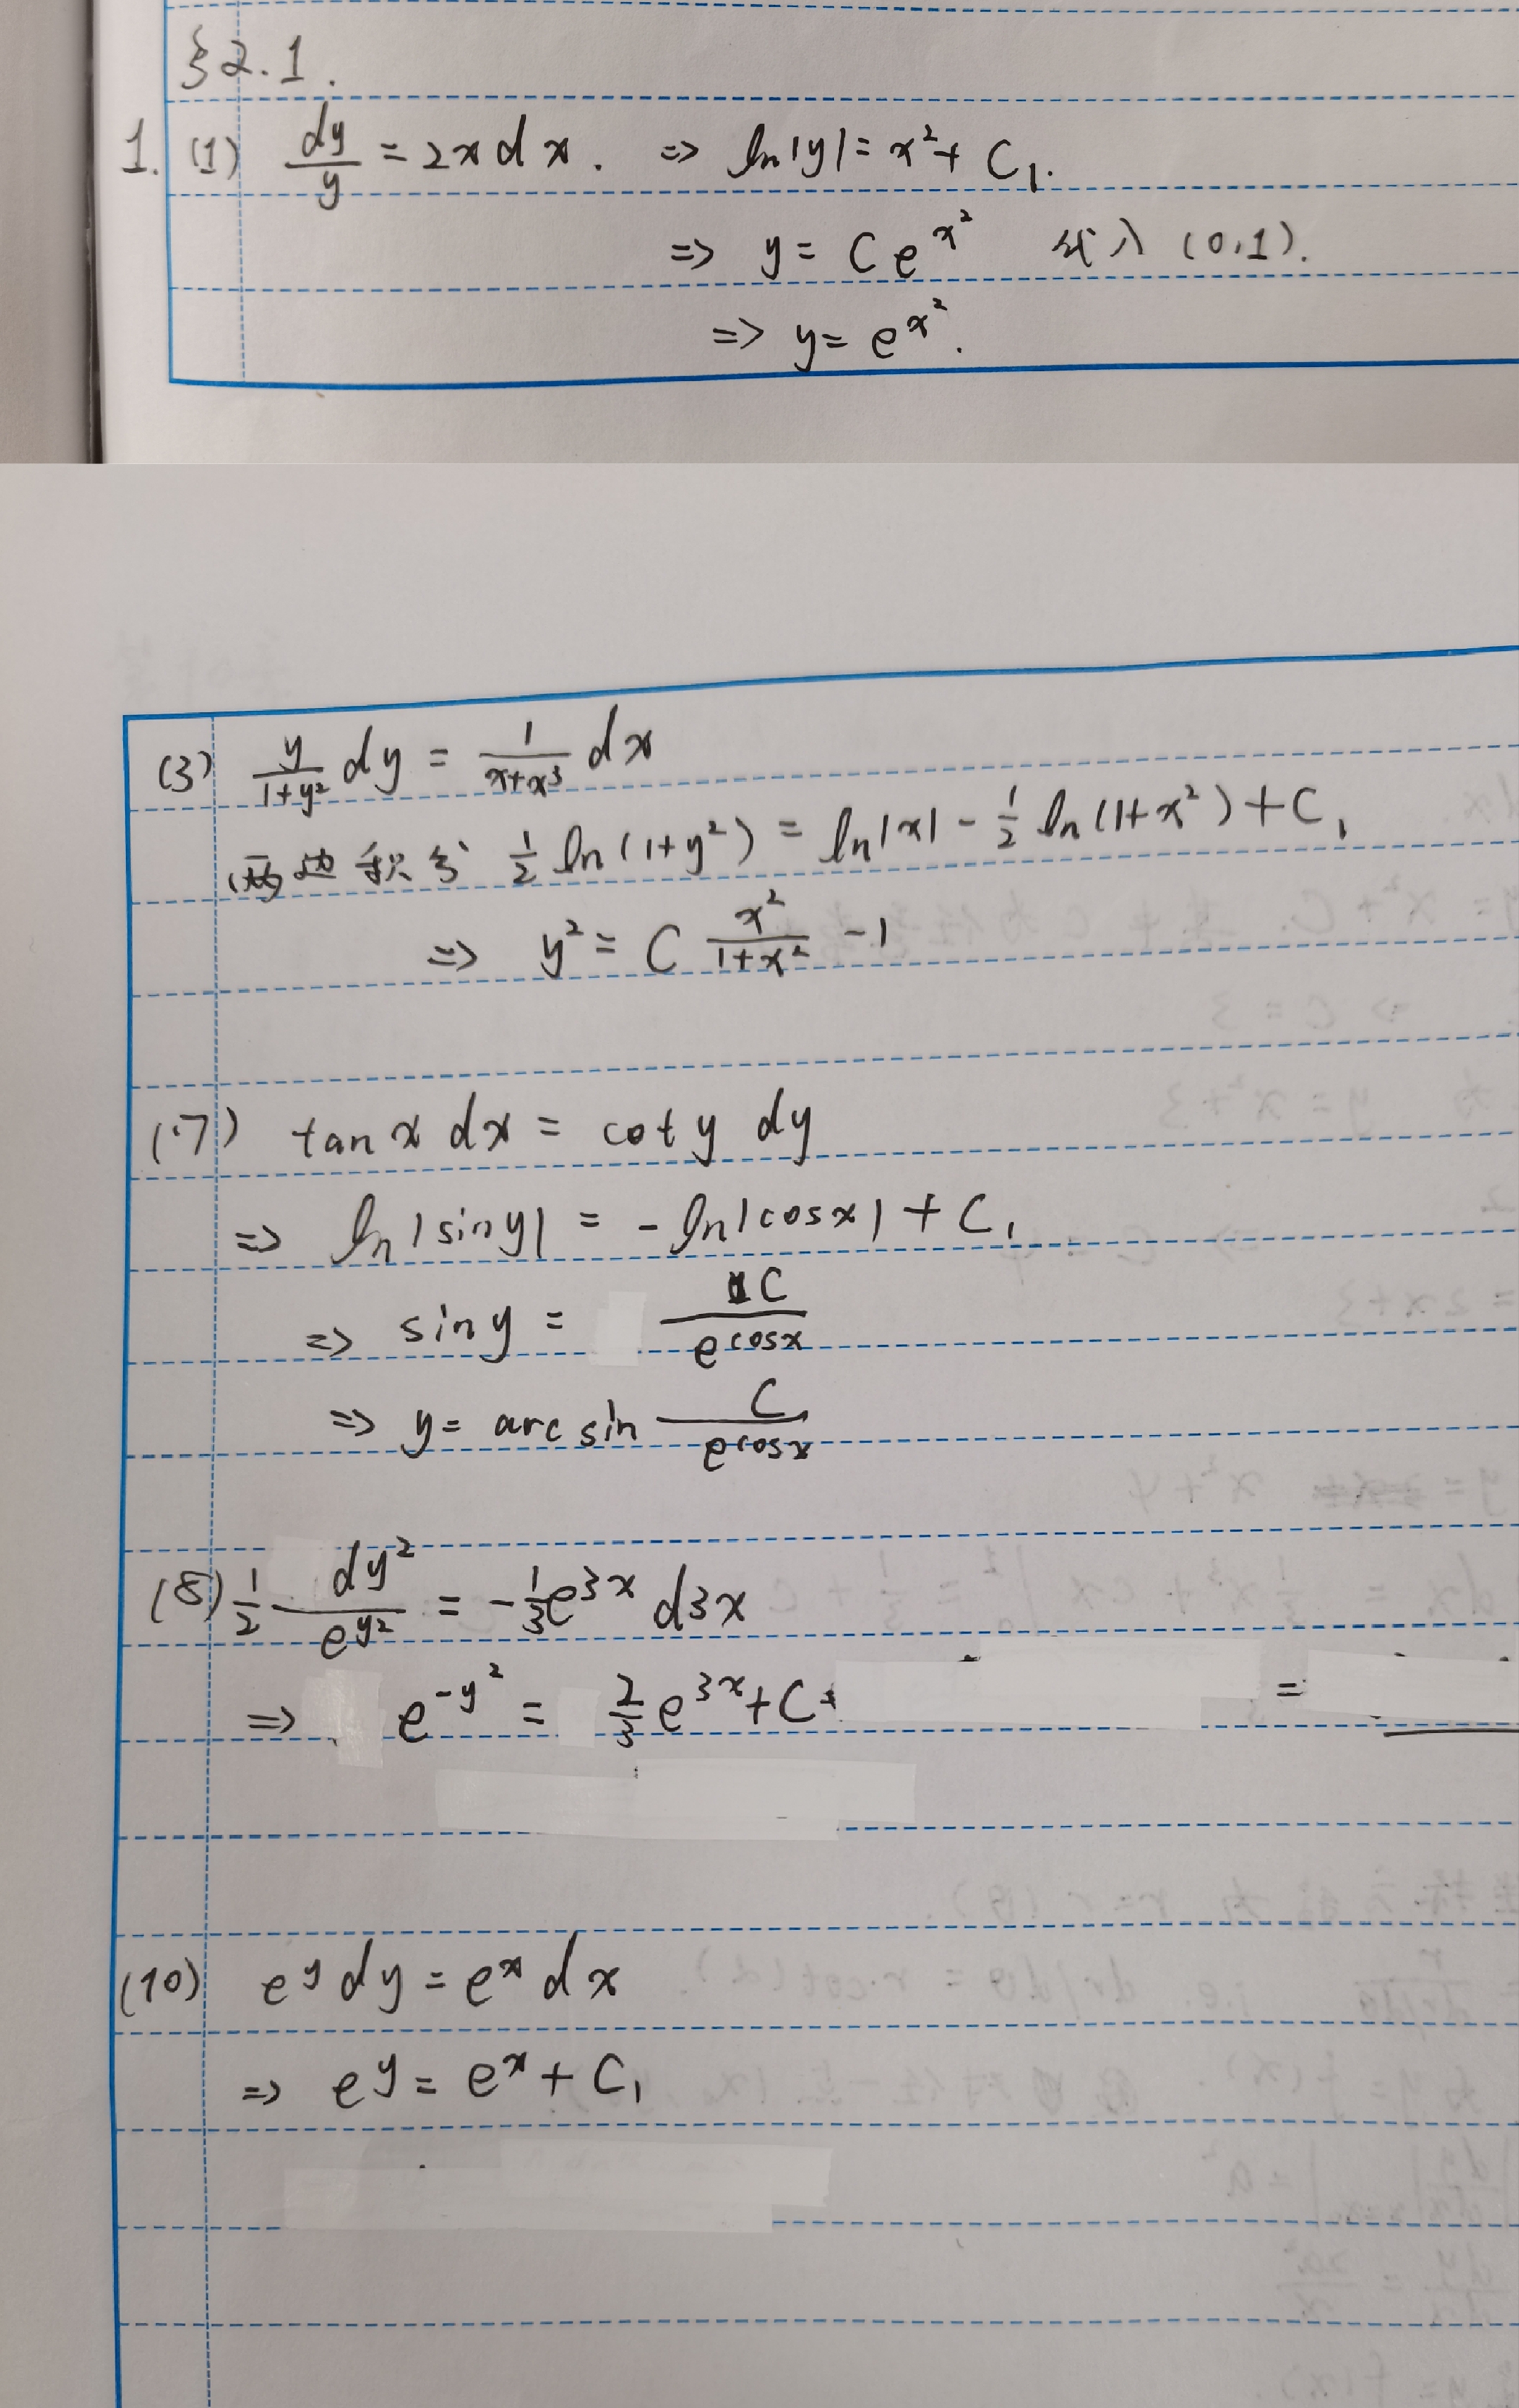 §2.1.
1. (1) dy/y = 2x dx. => ln|y| = x²+ C₁.
=> y = C e^{x²} 代入 (0,1).
=> y = e^{x²}.
(3) y/(1+y²) dy = 1/(x+x³) dx
两边积分 1/2 ln(1+y²) = ln|x| - 1/2 ln(1+x²) + C₁
=> y² = C x²/(1+x²) - 1
(7) tan x dx = cot y dy
=> ln|sin y| = - ln|cos x| + C₁
=> sin y = C/e^{cos x}
=> y = arc sin C/e^{cos x}
(8) 1/2 dy²/e^{y²} = - 1/3 e^{3x} d3x
=> e^{-y²} = 2/3 e^{3x} + C =
(10) e^y dy = e^x dx
=> e^y = e^x + C₁